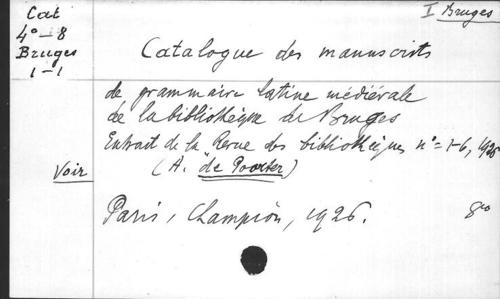 Cat
4° - 8
Bruges
1 - 1
I Bruges
Catalogue des manuscrits
de grammaire latine médiévale
de la bibliothèque de Bruges
Extrait de la Revue des bibliothèques n° = 1-6, 1926
Voir
(A. de Poorter)
Paris, Champion, 1926.
8vo